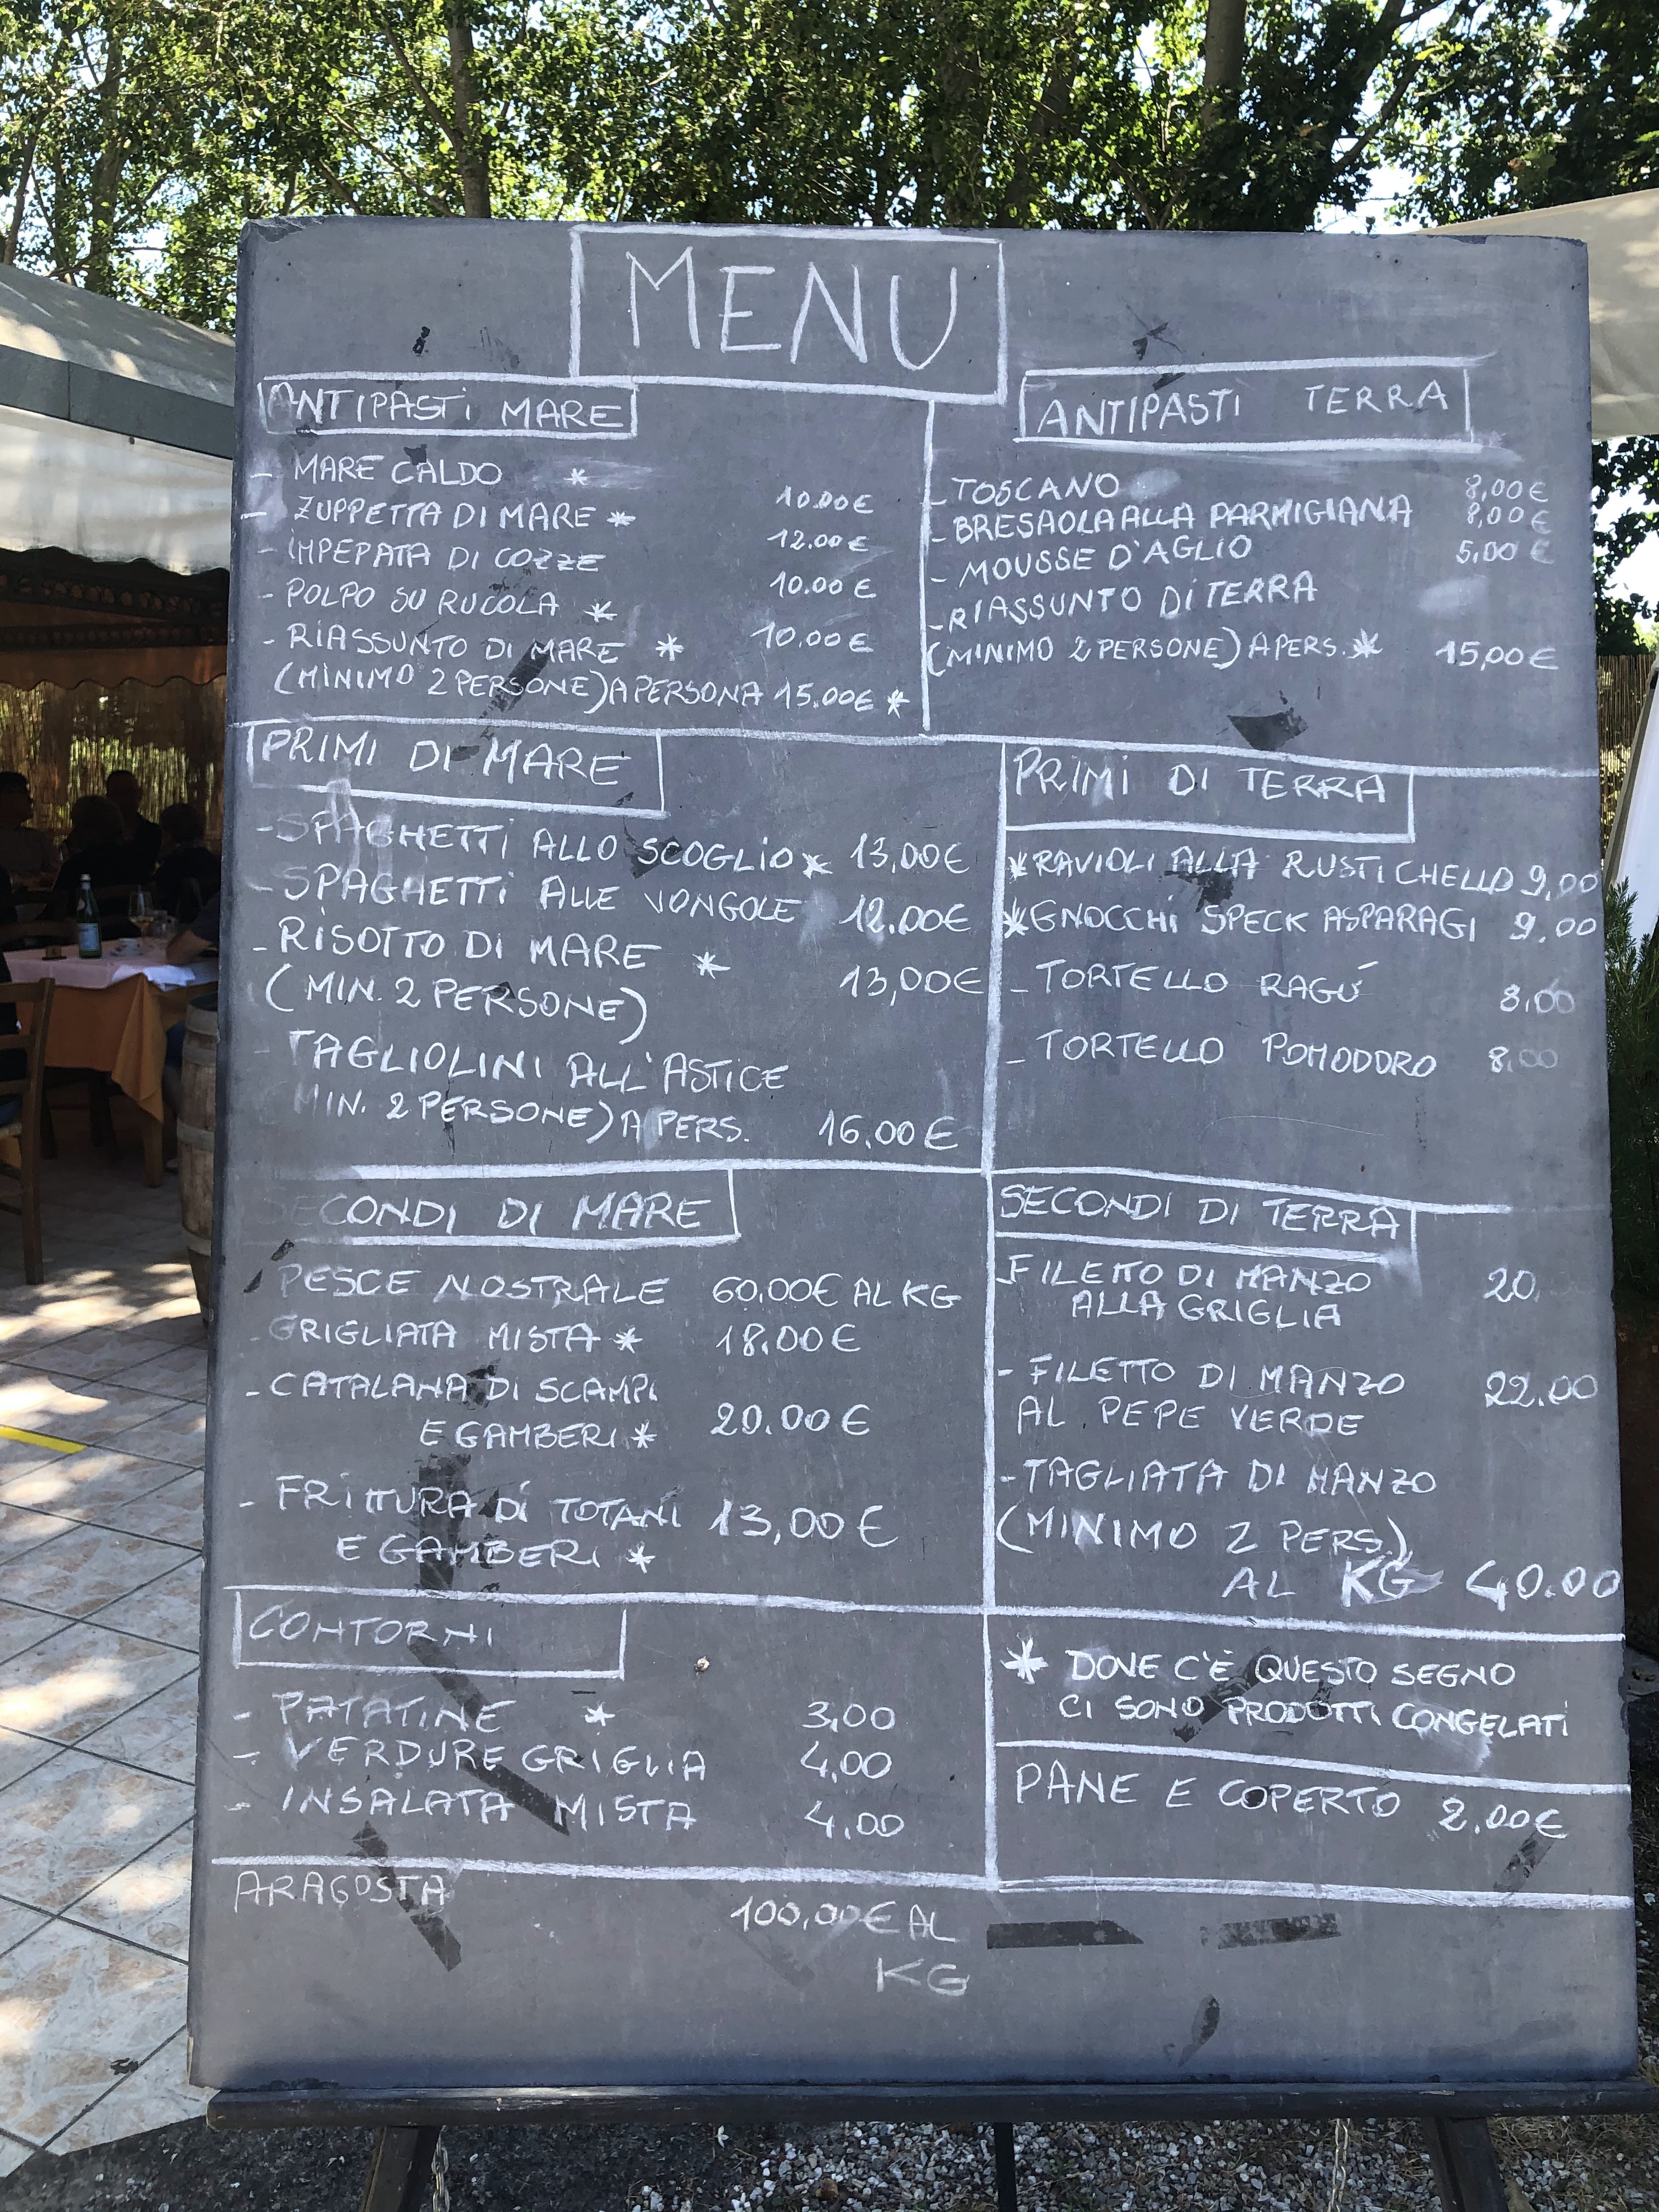 MENU
ANTIPASTI MARE
- MARE CALDO * 10.00€
- ZUPPETTA DI MARE * 12.00€
- IMPEPATA DI COZZE 10.00€
- POLPO SU RUCOLA * 10.00€
- RIASSUNTO DI MARE *
(MINIMO 2 PERSONE) A PERSONA 15.00€ *
ANTIPASTI TERRA
- TOSCANO 8,00€
- BRESAOLA ALLA PARMIGIANA 8,00€
- MOUSSE D'AGLIO 5,00 €
- RIASSUNTO DI TERRA
(MINIMO 2 PERSONE) A PERS. * 15,00€
PRIMI DI MARE
- SPAGHETTI ALLO SCOGLIO * 13,00€
- SPAGHETTI ALLE VONGOLE 12.00€
- RISOTTO DI MARE * 13,00€
(MIN. 2 PERSONE)
- TAGLIOLINI ALL'ASTICE
MIN. 2 PERSONE) A PERS. 16,00€
PRIMI DI TERRA
* RAVIOLI ALLA RUSTICHELLO 9,00
* GNOCCHI SPECK ASPARAGI 9.00
- TORTELLO RAGÚ 8,00
- TORTELLO POMODORO 8,00
SECONDI DI MARE
PESCE NOSTRALE 60,00€ AL KG
- GRIGLIATA MISTA * 18.00€
- CATALANA DI SCAMPI
E GAMBERI * 20.00€
- FRITTURA DI TOTANI 13,00€
E GAMBERI *
SECONDI DI TERRA
- FILETTO DI MANZO 20,
ALLA GRIGLIA
- FILETTO DI MANZO 22.00
AL PEPE VERDE
- TAGLIATA DI MANZO
(MINIMO 2 PERS.)
AL KG 40.00
CONTORNI
- PATATINE * 3,00
- VERDURE GRIGLIA 4,00
- INSALATA MISTA 4,00
* DOVE C'È QUESTO SEGNO
CI SONO PRODOTTI CONGELATI
PANE E COPERTO 2,00€
ARAGOSTA 100,00€ AL
KG